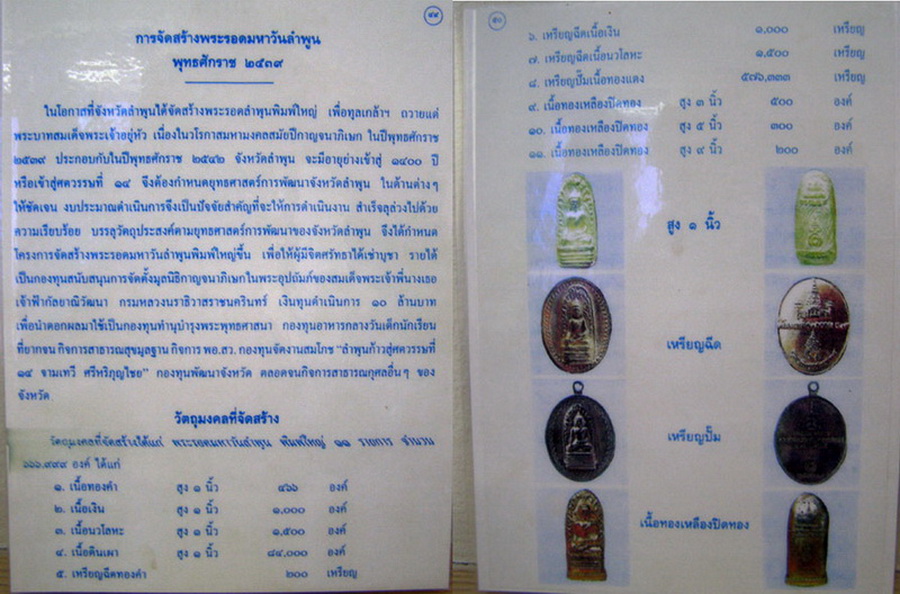 ๔๔
การจัดสร้างพระรอดมหาวันลำพูน
พุทธศักราช ๒๕๓๙
ในโอกาสที่จังหวัดลำพูนได้จัดสร้างพระรอดลำพูนพิมพ์ใหญ่ เพื่อทูลเกล้าฯ ถวายแด่
พระบาทสมเด็จพระเจ้าอยู่หัว เนื่องในวโรกาสมหามงคลสมัยปีกาญจนาภิเษก ในปีพุทธศักราช
๒๕๓๙ ประกอบกับในปีพุทธศักราช ๒๕๔๒ จังหวัดลำพูน จะมีอายุย่างเข้าสู่ ๑๔๐๐ ปี
หรือเข้าสู่ศตวรรษที่ ๑๔ จึงต้องกำหนดยุทธศาสตร์การพัฒนาจังหวัดลำพูน ในด้านต่างๆ
ให้ชัดเจน งบประมาณดำเนินการจึงเป็นปัจจัยสำคัญที่จะให้การดำเนินงาน สำเร็จลุล่วงไปด้วย
ความเรียบร้อย บรรลุวัตถุประสงค์ตามยุทธศาสตร์การพัฒนาของจังหวัดลำพูน จึงได้กำหนด
โครงการจัดสร้างพระรอดมหาวันลำพูนพิมพ์ใหญ่ขึ้น เพื่อให้ผู้มีจิตศรัทธาได้เช่าบูชา รายได้
เป็นกองทุนสนับสนุนการจัดตั้งมูลนิธิกาญจนาภิเษกในพระอุปถัมภ์ของสมเด็จพระเจ้าพี่นางเธอ
เจ้าฟ้ากัลยาณิวัฒนา กรมหลวงนราธิวาสราชนครินทร์ เงินทุนดำเนินการ ๑๐ ล้านบาท
เพื่อนำดอกผลมาใช้เป็นกองทุนทำนุบำรุงพระพุทธศาสนา กองทุนอาหารกลางวันเด็กนักเรียน
ที่ยากจน กิจการสาธารณสุขมูลฐาน กิจการ พอ.สว. กองทุนจัดงานสมโภช "ลำพูนก้าวสู่ศตวรรษที่
๑๔ จามเทวี ศรีหริภุญไชย" กองทุนพัฒนาจังหวัด ตลอดจนกิจการสาธารณกุศลอื่นๆ ของ
จังหวัด
วัตถุมงคลที่จัดสร้าง
วัตถุมงคลที่จัดสร้างได้แก่ พระรอดมหาวันลำพูน พิมพ์ใหญ่ ๑๑ รายการ จำนวน
๖๖๖,๙๙๙ องค์ ได้แก่
๑. เนื้อทองคำ สูง ๑ นิ้ว ๔๖๖ องค์
๒. เนื้อเงิน สูง ๑ นิ้ว ๑,๐๐๐ องค์
๓. เนื้อนวโลหะ สูง ๑ นิ้ว ๑,๕๐๐ องค์
๔. เนื้อดินเผา สูง ๑ นิ้ว ๘๔,๐๐๐ องค์
๕. เหรียญฉีดทองคำ ๒๐๐ เหรียญ
๖. เหรียญฉีดเนื้อเงิน ๑,๐๐๐ เหรียญ
๗. เหรียญฉีดเนื้อนวโลหะ ๑,๕๐๐ เหรียญ
๘. เหรียญปั๊มเนื้อทองแดง ๕๗๖,๓๓๓ เหรียญ
๙. เนื้อทองเหลืองปิดทอง สูง ๓ นิ้ว ๕๐๐ องค์
๑๐. เนื้อทองเหลืองปิดทอง สูง ๕ นิ้ว ๓๐๐ องค์
๑๑. เนื้อทองเหลืองปิดทอง สูง ๙ นิ้ว ๒๐๐ องค์
สูง ๑ นิ้ว
เหรียญฉีด
เหรียญปั๊ม
เนื้อทองเหลืองปิดทอง